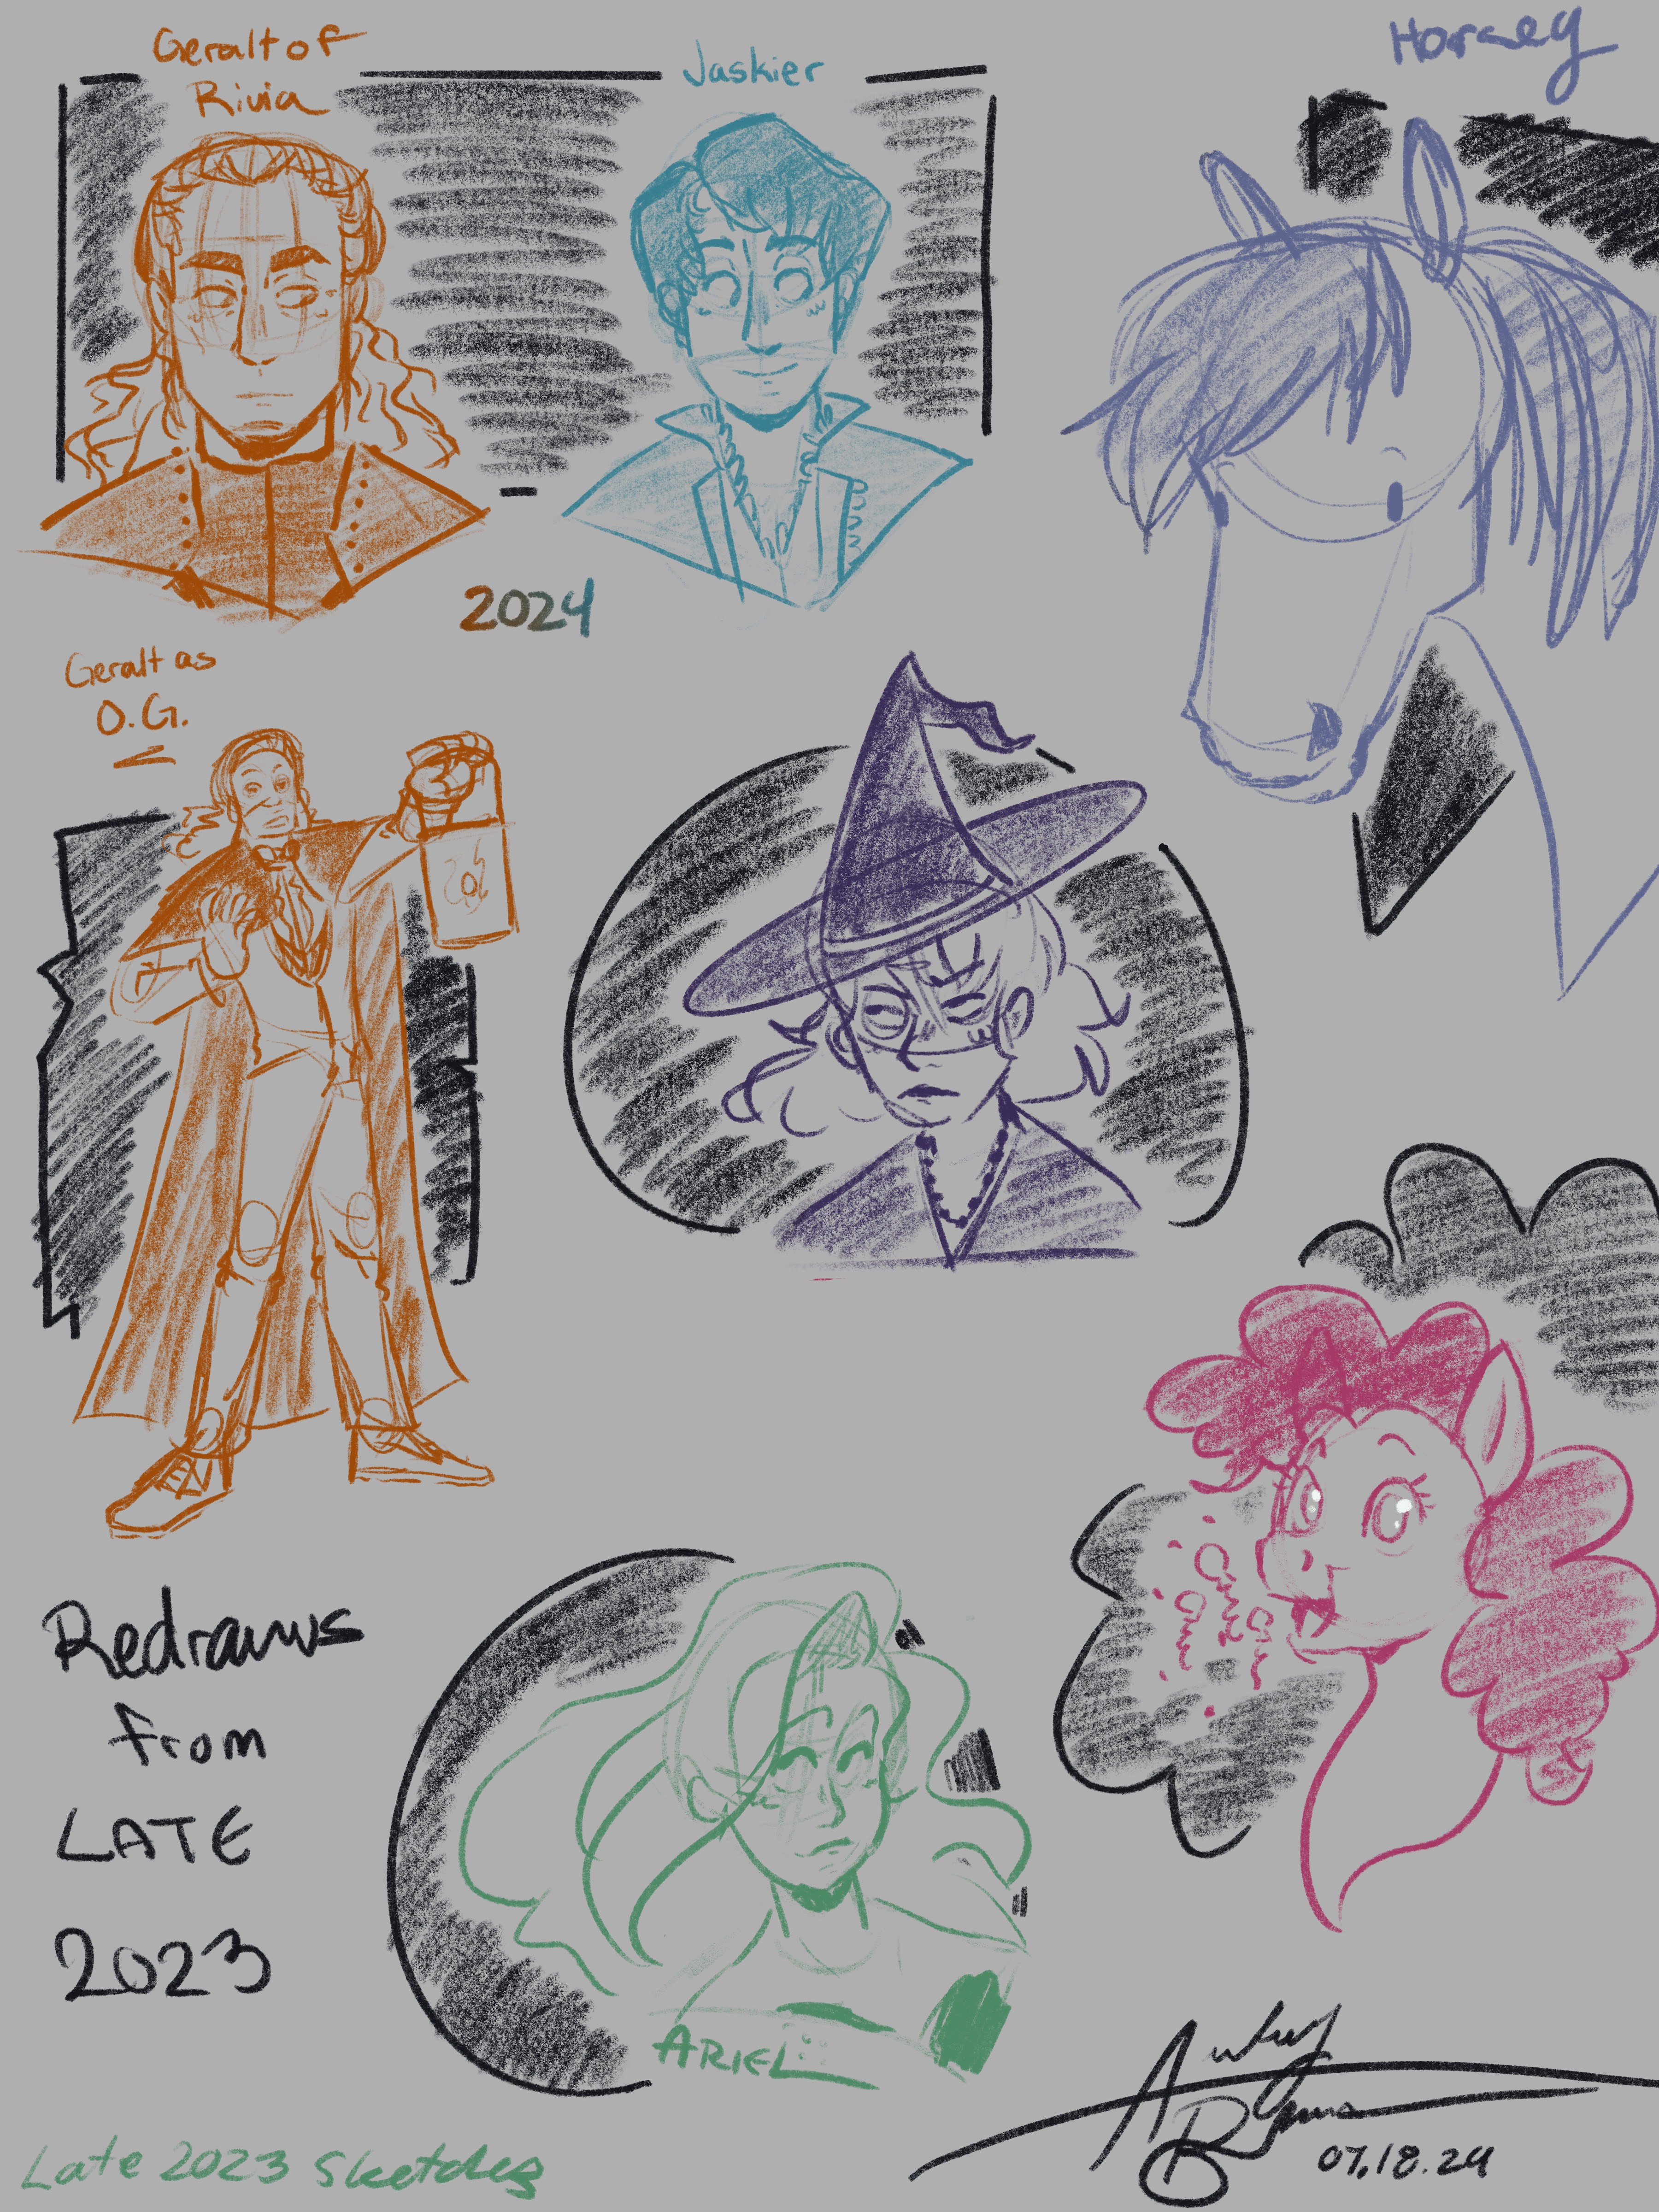 Geralt of
Rivia
Jaskier
Horsey
2024
Geralt as
O.G.
Redraws
from
LATE
2023
ARIEL
Late 2023 Sketches
07.18.24